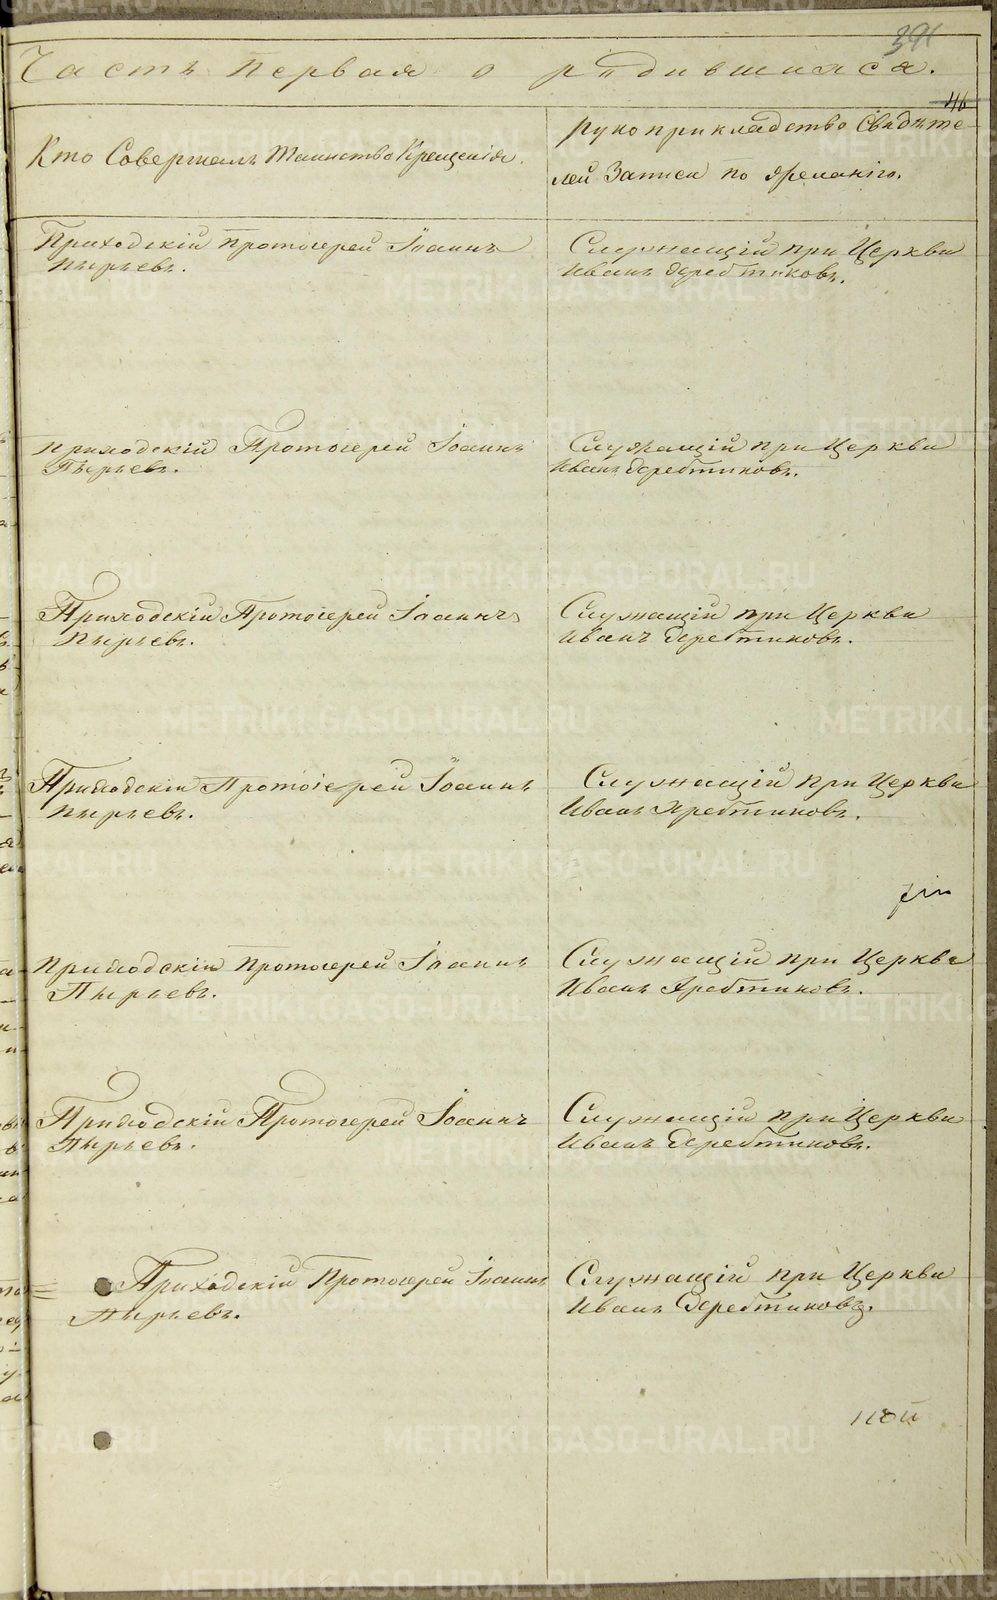 391
Часть первая о родившихся.
46
Кто Совершалъ Таинство Крещенія.
рукоприкладство Свидѣте-
лей Записи по желанію.
Приходскій Протоіерей Іоаннъ
Пырьевъ.
Служащій при Церкви
Иванъ Жеребтиковъ.
приходскій Протоіерей Іоаннъ
Пырьевъ.
Служащій при Церкви
Иванъ Жеребтиковъ.
Приходскій Протоіерей Іоаннъ
Пырьевъ.
Служащій при Церкви
Иванъ Жеребтиковъ.
Приходскій Протоіерей Іоаннъ
Пырьевъ.
Служащій при Церкви
Иванъ Жеребтиковъ.
Приходскій Протоіерей Іоаннъ
Пырьевъ.
Служащій при Церкви
Иванъ Жеребтиковъ.
Приходскій Протоіерей Іоаннъ
Пырьевъ.
Служащій при Церкви
Иванъ Жеребтиковъ.
Приходскій Протоіерей Іоаннъ
Пырьевъ.
Служащій при Церкви
Иванъ Жеребтиковъ.
METRIKI.GASO-URAL.RU